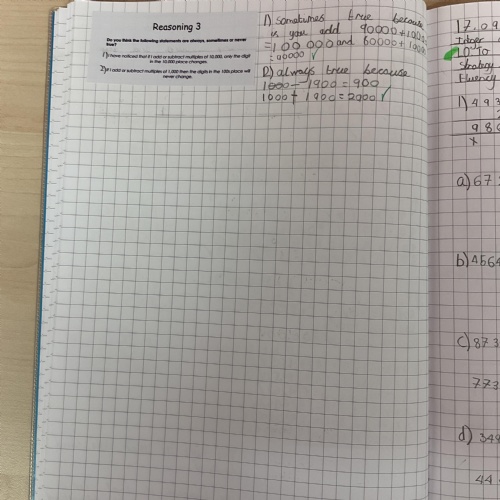 Reasoning 3
Do you think the following statements are always, sometimes or never true?
1) I have noticed that if I add or subtract multiples of 10,000, only the digit in the 10,000 place changes.
2) If I add or subtract multiples of 1,000 then the digits in the 100s place will never change.
1) sometimes true because
is you add 90000 + 1000
= 100 000 and 80000 + 1000
= 90000
2) always true because
1000 - 1900 = 900
1000 + 1900 = 2900
17.09
10 to
Strategy
Fluency
1) 493
980
x
a) 67
b) 4564
c) 873
773
d) 349
44